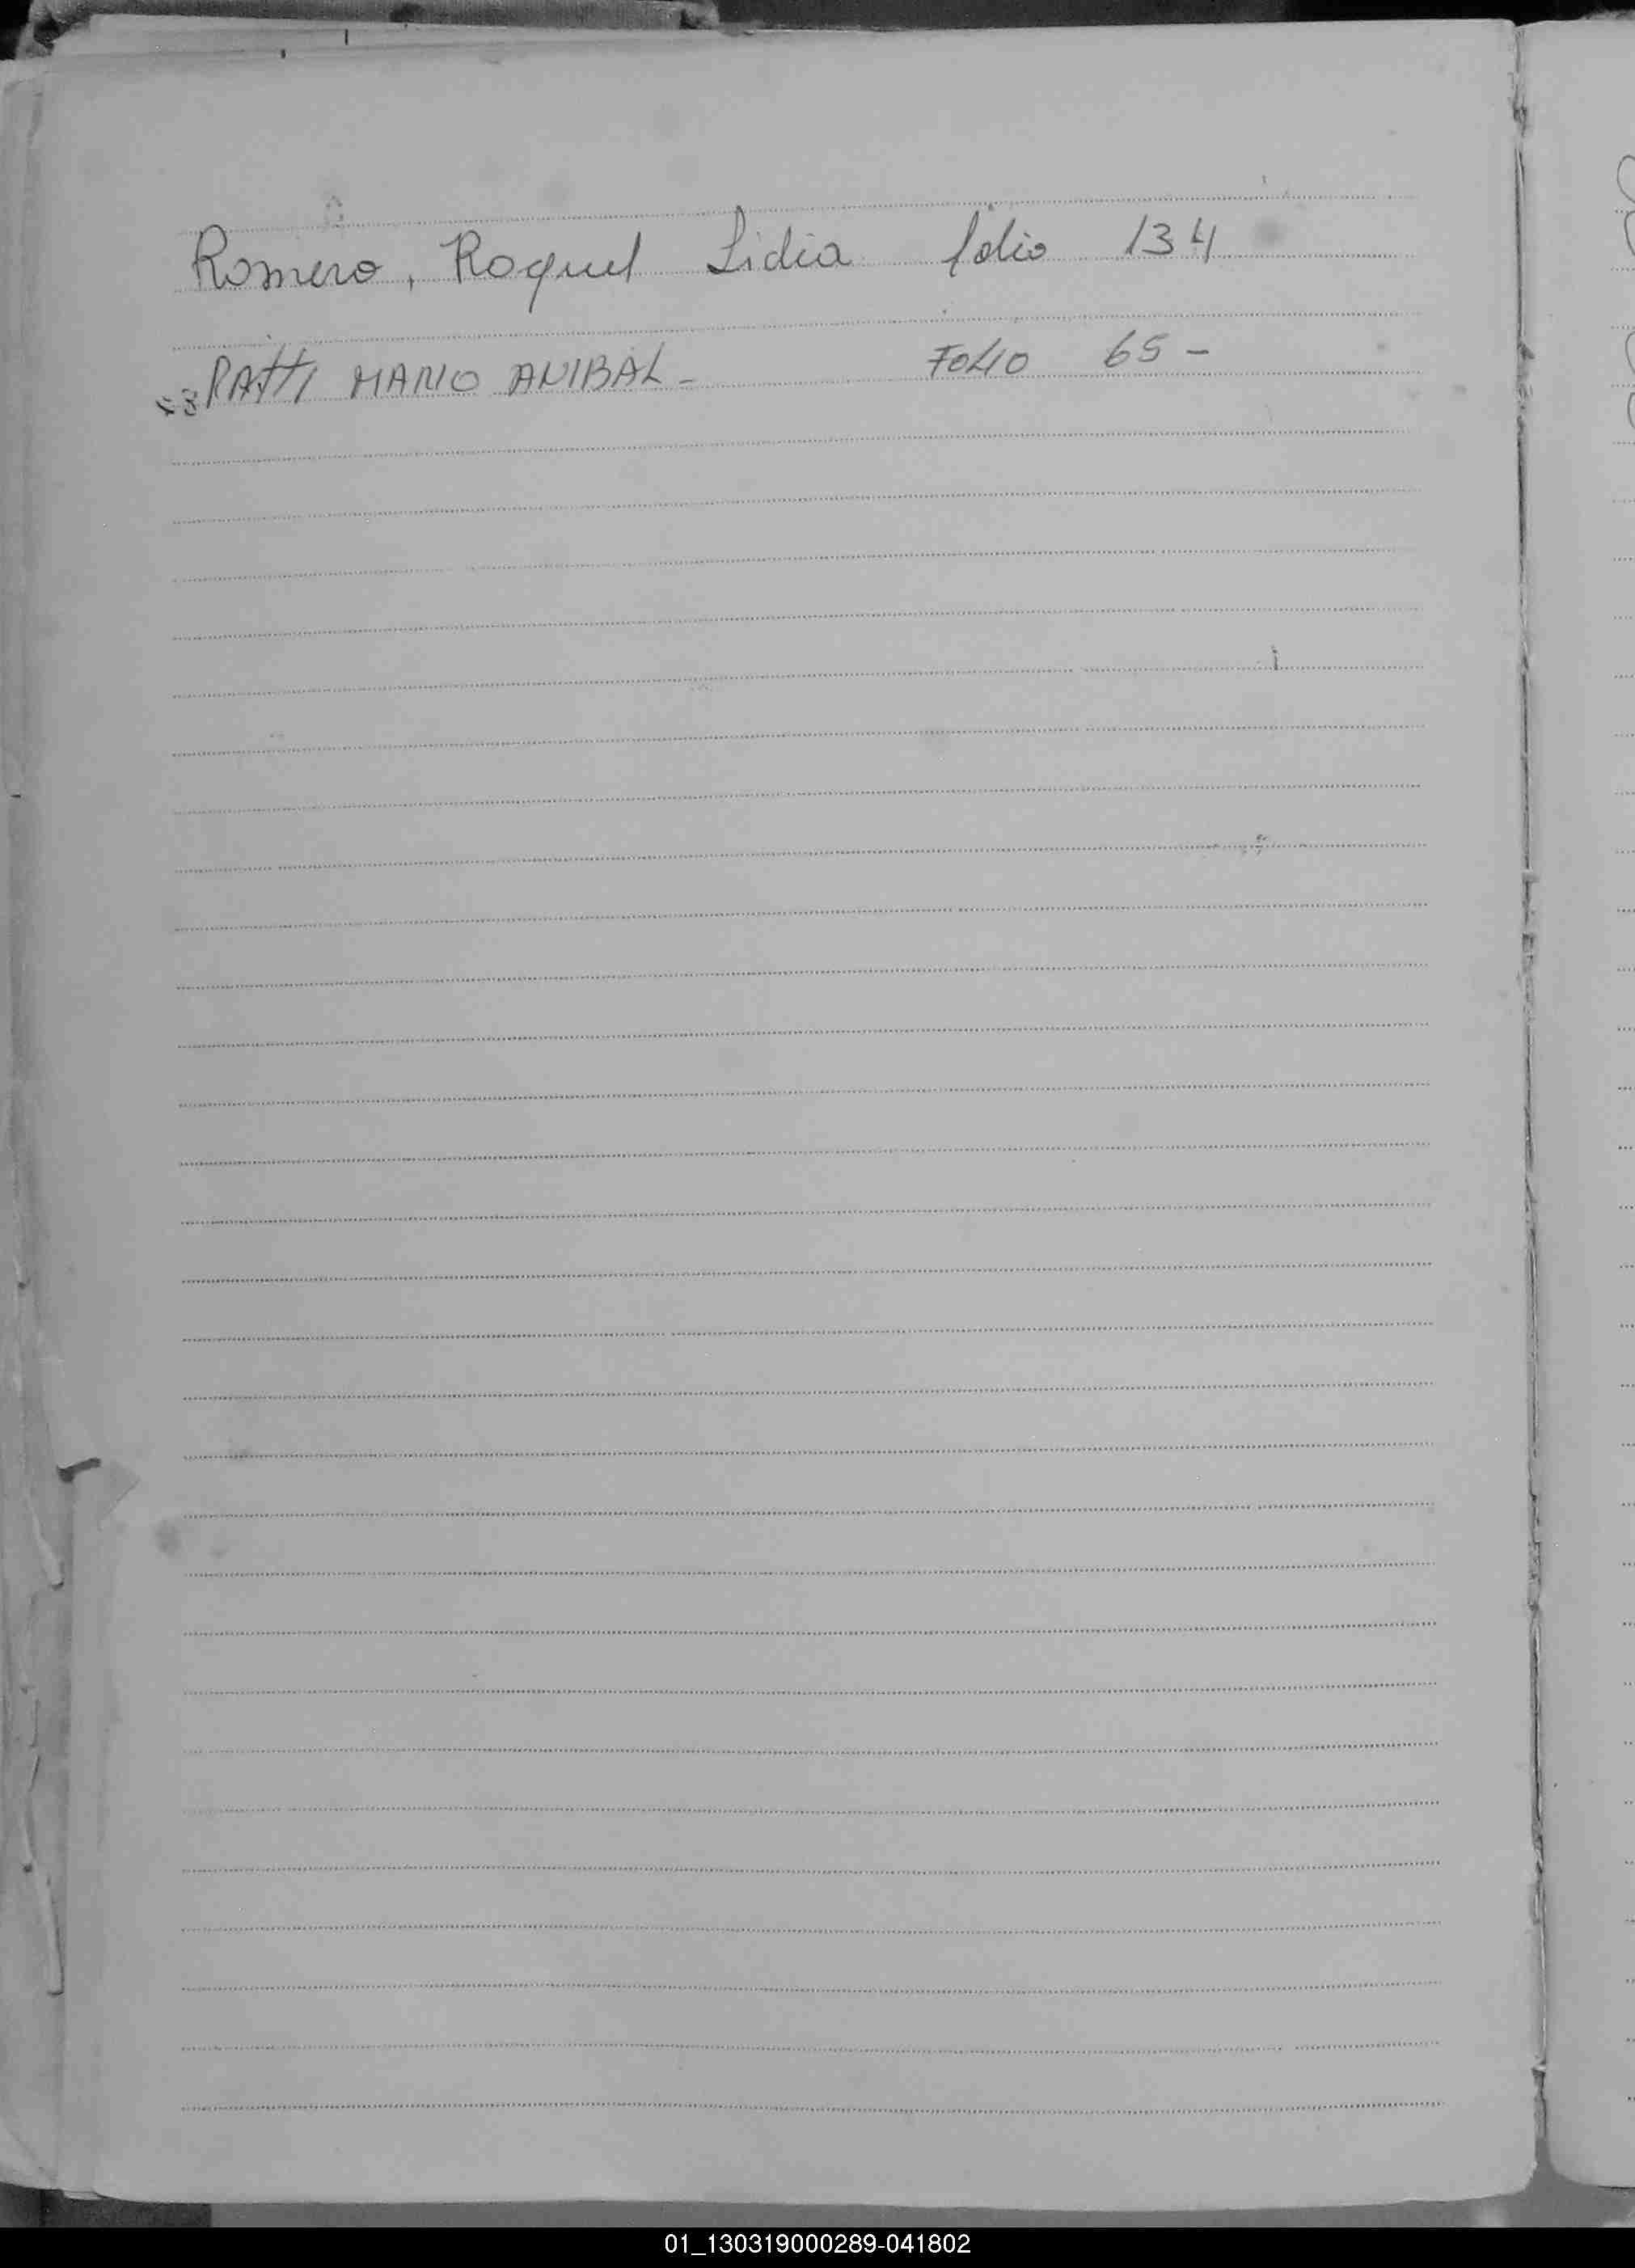 Romero, Raquel Lidia folio 134
RATTI MARIO ANIBAL - FOLIO 65 -
01_130319000289-041802